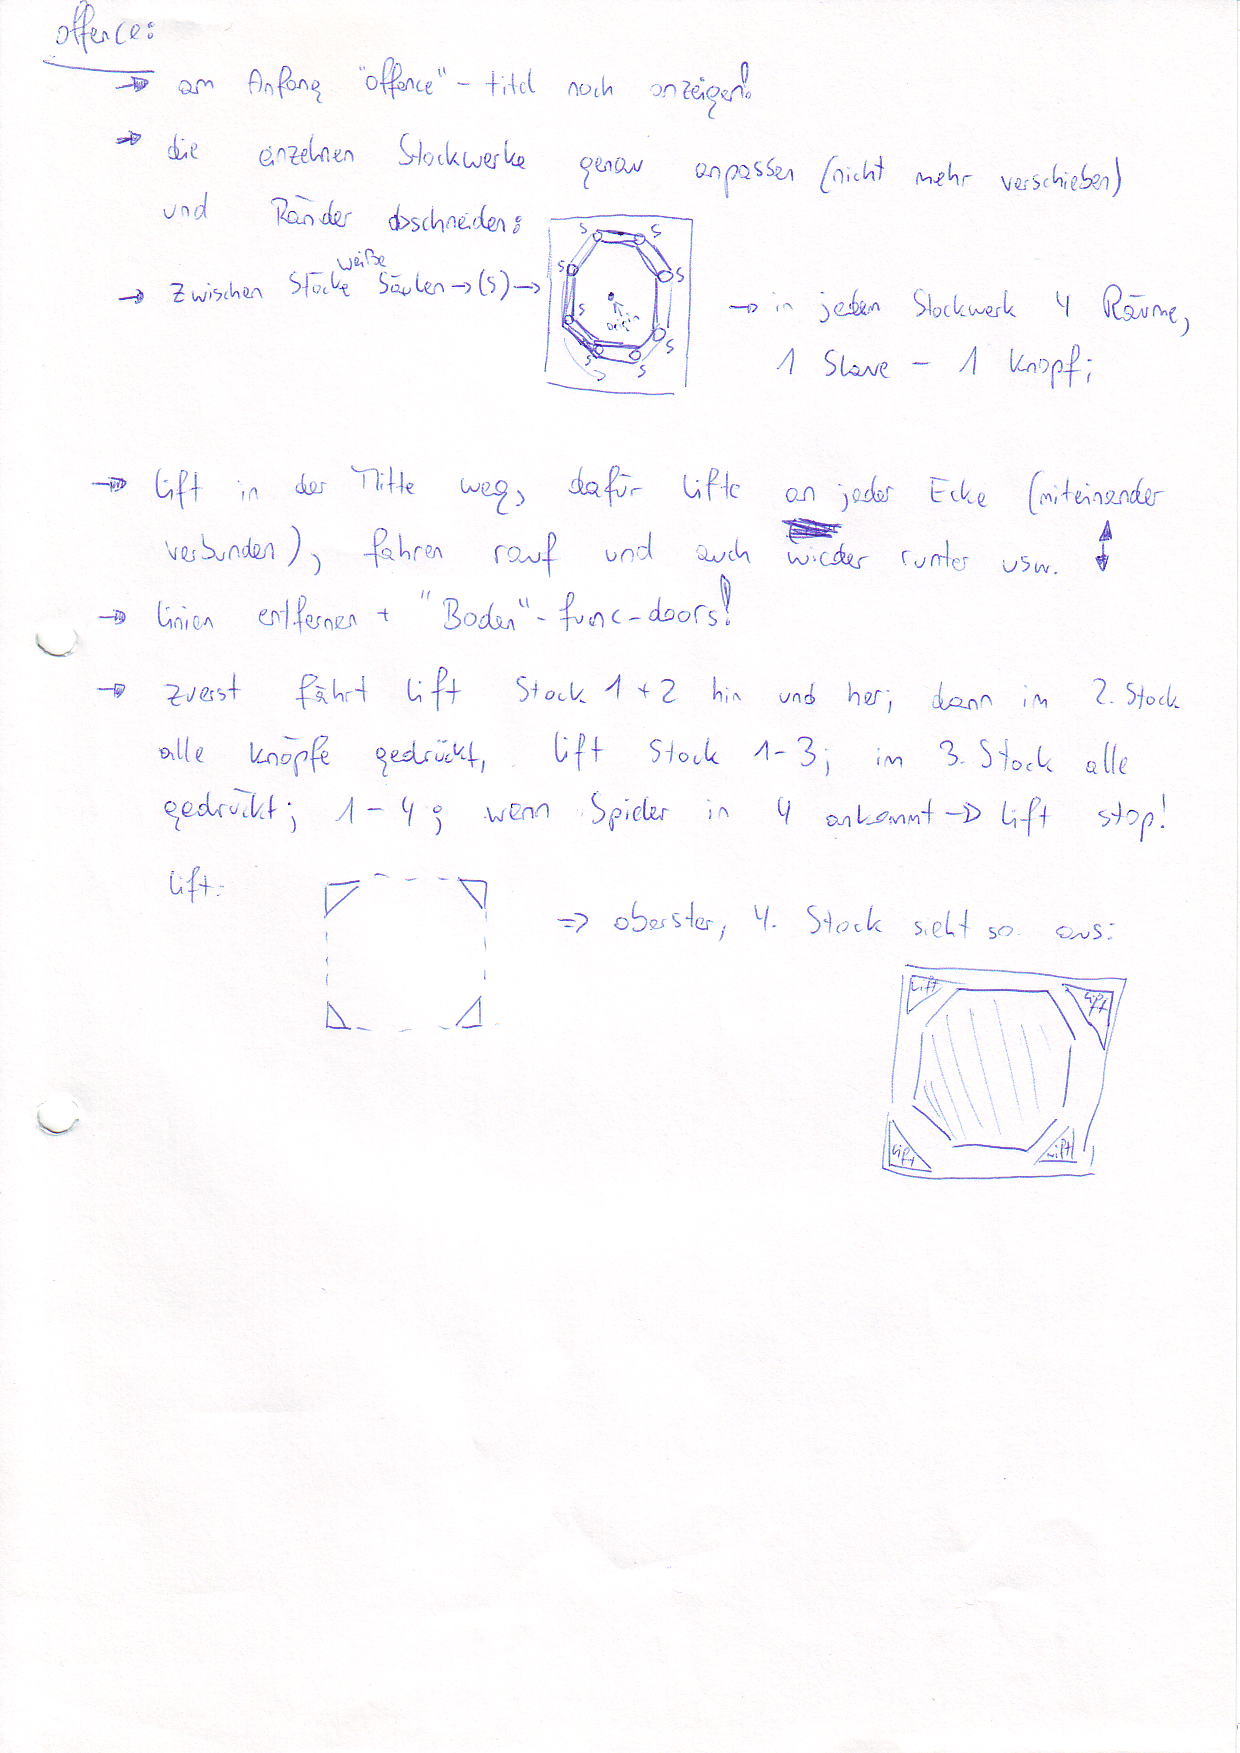 offence:
→ am Anfang "offence" - titel noch anzeigen!
→ die einzelnen Stockwerke genau anpassen (nicht mehr verschieben)
und Ränder abschneiden:
→ zwischen Stöcke weiße Säulen → (S) →
S S S S S S S S
→ in jedem Stockwerk 4 Räume,
1 Slave - 1 Knopf;
→ Lift in der Mitte weg, dafür Lifte an jeder Ecke (miteinander
verbunden), fahren rauf und auch wieder runter usw.
→ Linien entfernen + "Boden" - func-doors!
→ zuerst fährt Lift Stock 1 + 2 hin und her; dann im 2. Stock
alle Knöpfe gedrückt, Lift Stock 1-3; im 3. Stock alle
gedrückt; 1-4; wenn Spieler in 4 ankommt → Lift stop!
Lift:
⇒ oberster, 4. Stock sieht so aus:
Lift Lift
Lift Lift